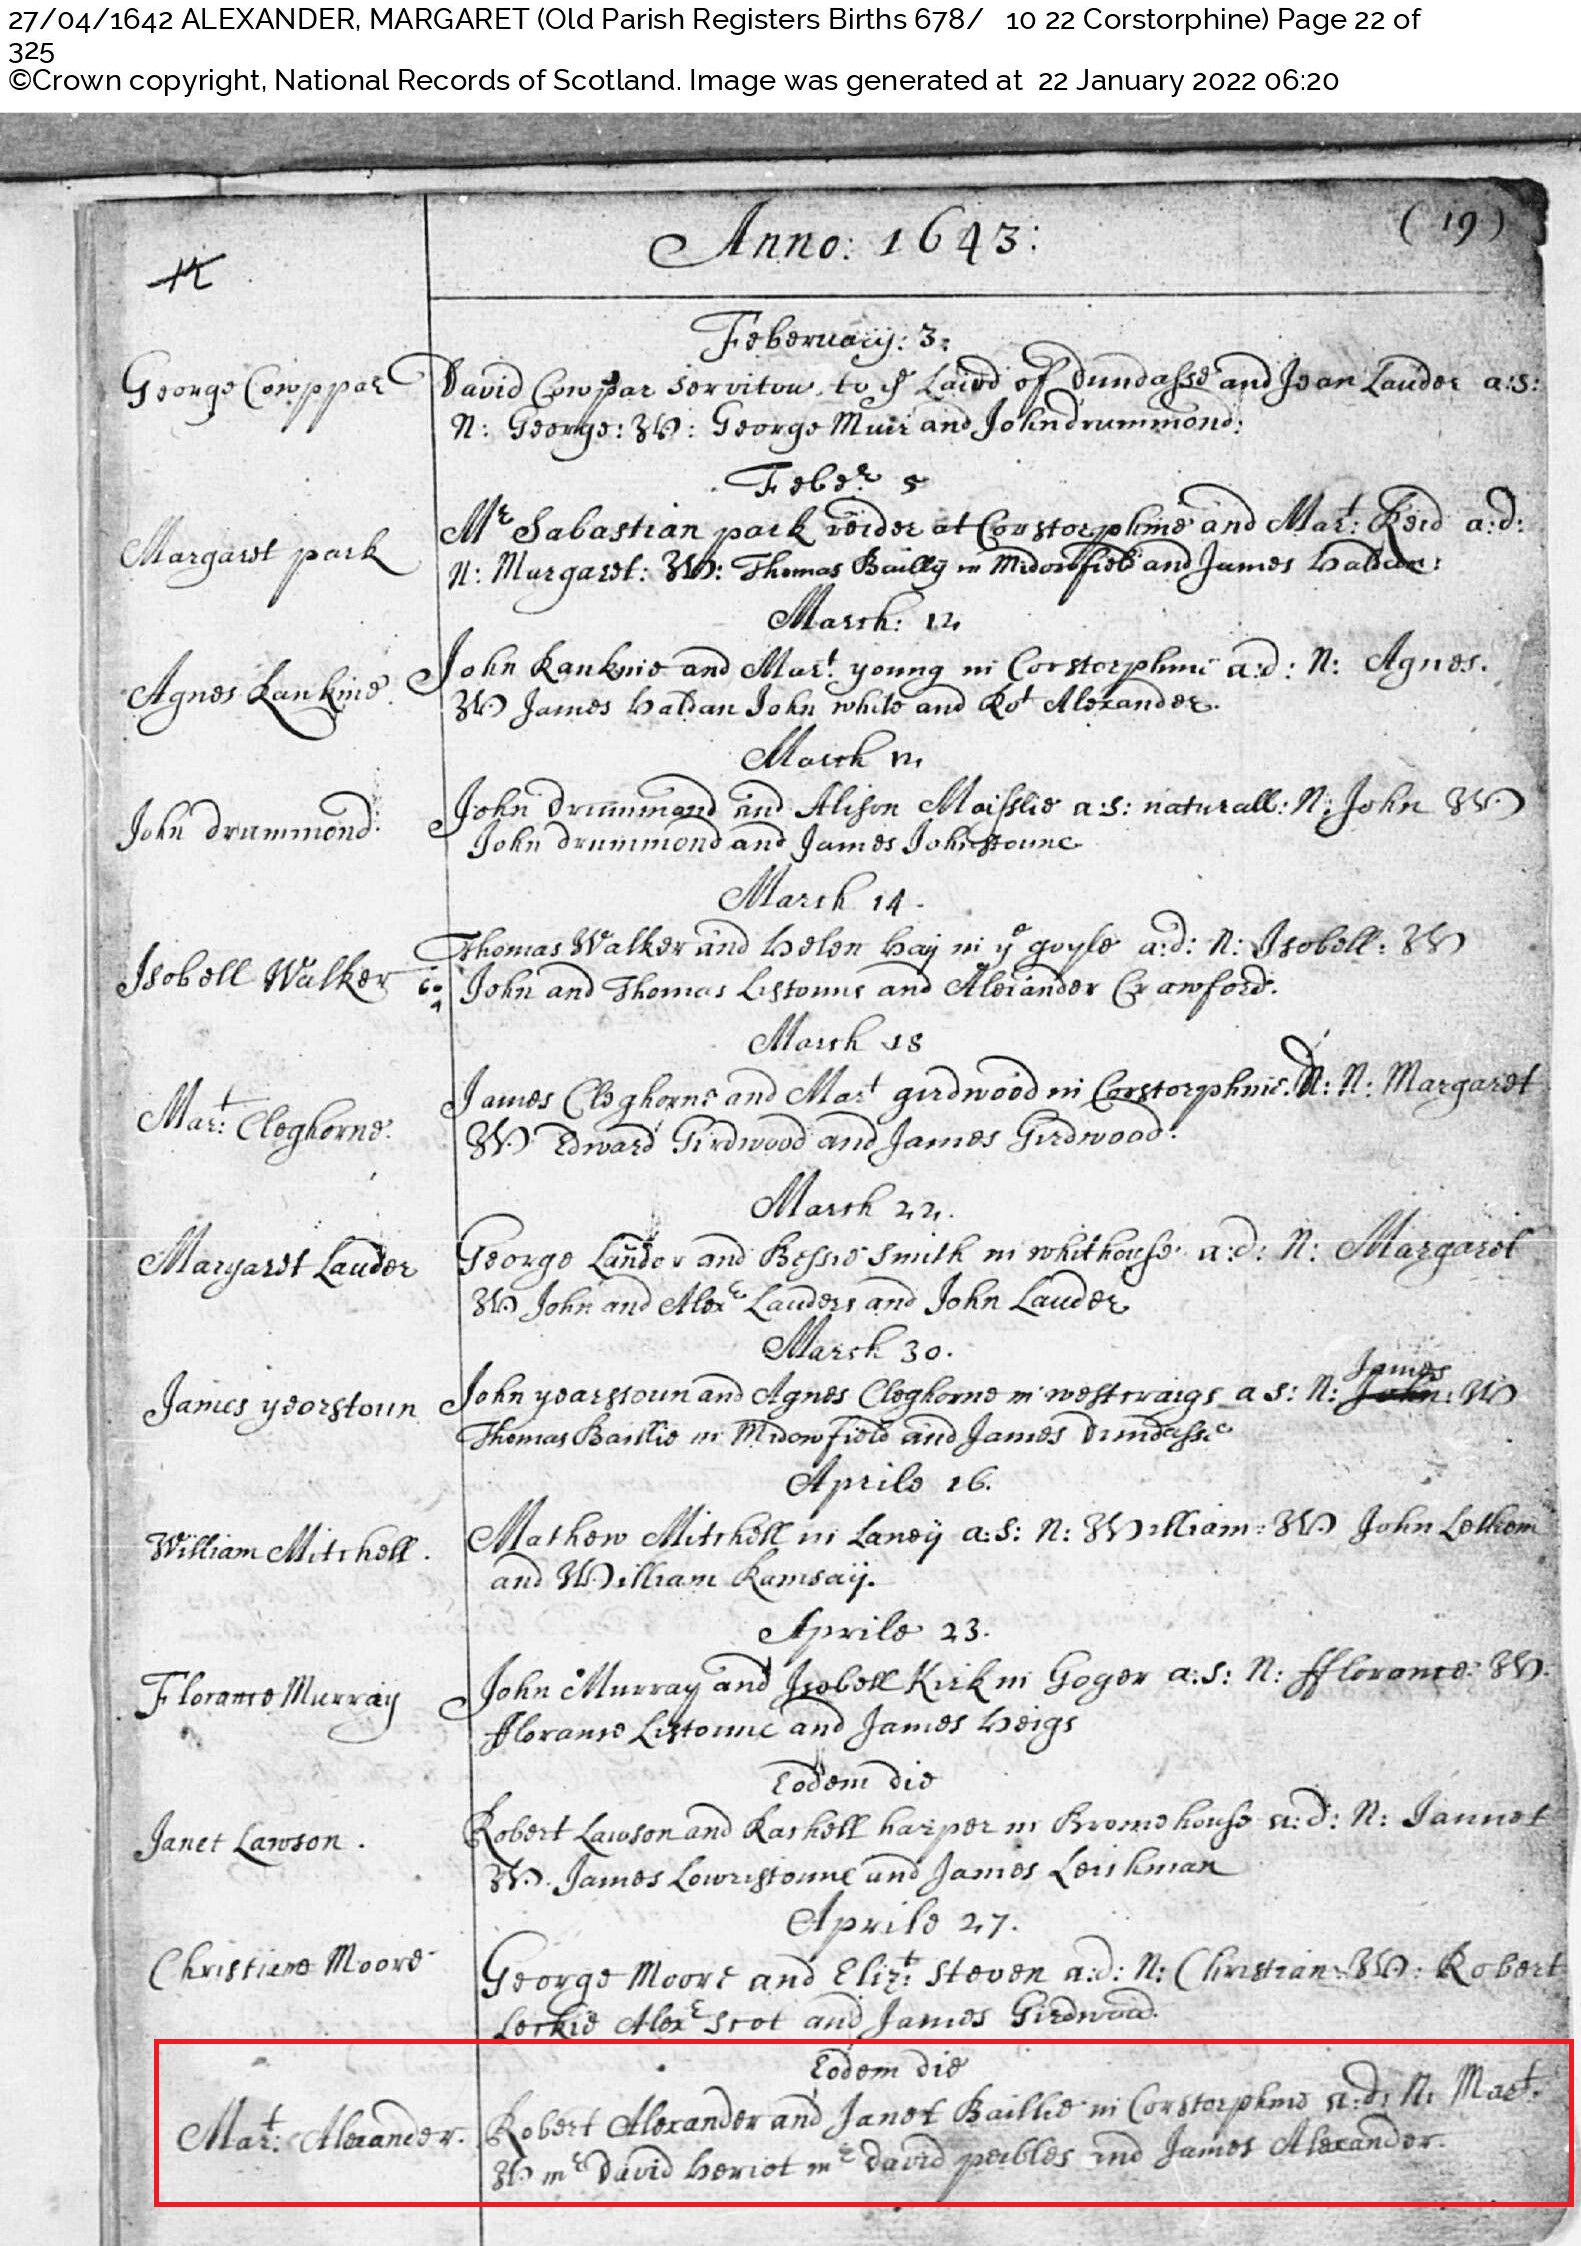 27/04/1642 ALEXANDER, MARGARET (Old Parish Registers Births 678/ 10 22 Corstorphine) Page 22 of
325
©Crown copyright, National Records of Scotland. Image was generated at 22 January 2022 06:20
Anno: 1643: (19)
Feberuary: 3:
George Cowppar David Cowpar servitou to ye Laird of Dundasse and Jean Lauder a:s:
N: George: W: George Muir and John drummond:
Feber 5
Margaret park Mr Sabastian park reider at Corstorphine and Mart: Reid a:d:
N: Margaret: W: Thomas Bailly in Midowfield and James Haldan:
March: 12
Agnes Rankine John Rankine and Mart young in Corstorphine a:d: N: Agnes.
W James Haldan John white and Rot Alexander.
March 12
John drummond: John Drummond and Alison Maisslie a:s: naturall: N: John W
John drummond and James Johnstoune
March 14.
Isobell Walker Thomas Walker and Helen Hay in ye gyle a:d: N: Isobell: W
John and Thomas Listoune and Alexander Crawford.
March 18
Mart: Cleghorne. James Cleghorne and Mart girdwood in Corstorphine. d: N: Margaret
W Edward Girdwood and James Girdwood.
March 22.
Margaret Lauder George Lauder and Bessie Smith in whithouse a:d: N: Margaret
W John and Alexr Lauders and John Lauder
March 30.
James yeorstoun John yearstoun and Agnes Cleghorne in westcraigs a s: N: John: James W
Thomas Baillie in Midowfield and James Dundasse
Aprile 16.
William Mitchell. Mathew Mitchell in Laney a:s: N: William: W John Lethem
and William Ramsay.
Aprile 23.
Florance Murray John Murray and Isobell Kirk in Goger a:s: N: fflorance: W.
fflorance Listoune and James Heigs
Eodem die
Janet Lawson. Robert Lawson and Rachell harper in Bromehouse a:d: N: Jannet
W. James Lowristoune and James Leishman
Aprile 27.
Christiane Moore George Moore and Elizt: Steven a:d: N: Christian: W: Robert
Leckie Alexr Scot and James Girdwood.
Eodem die
Mart: Alexander. Robert Alexander and Janet Baillie in Corstorphine a:d: N: Mart.
W mr David Heriot mr David peibles and James Alexander.